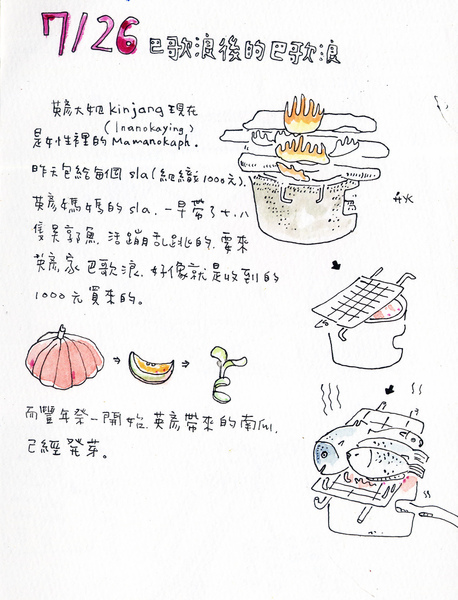 7/26 巴歌浪後的巴歌浪
英彥大姐 kinjang 現在
(Inanokaying)
是女性裡的 Mamanokaph.
昨天包給每個 sla(組織1000元),
英彥媽媽的 sla. 一早帶了七、八
隻吳郭魚. 活蹦亂跳的. 要來
英彥家巴歌浪. 好像就是收到的
1000元買來的。
火
而豐年祭一開始. 英彥帶來的南瓜.
已經發芽。